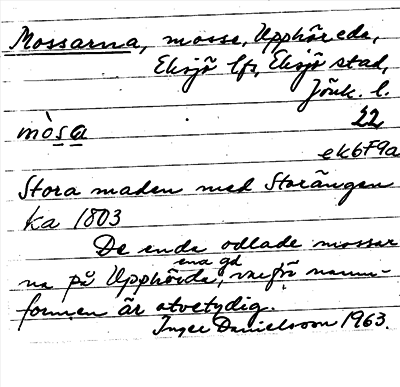 Mossarna, mosse, Upphöreda,
Eksjö lfs, Eksjö stad,
Jönk. l.
22
mò̀sa
ek6f9a
Stora maden med Storängen
Ka 1803
De enda odlade mossar
na på Upphöreda, varför namn-
ena gd
formen är otvetydig.
Inger Danielsson 1963.